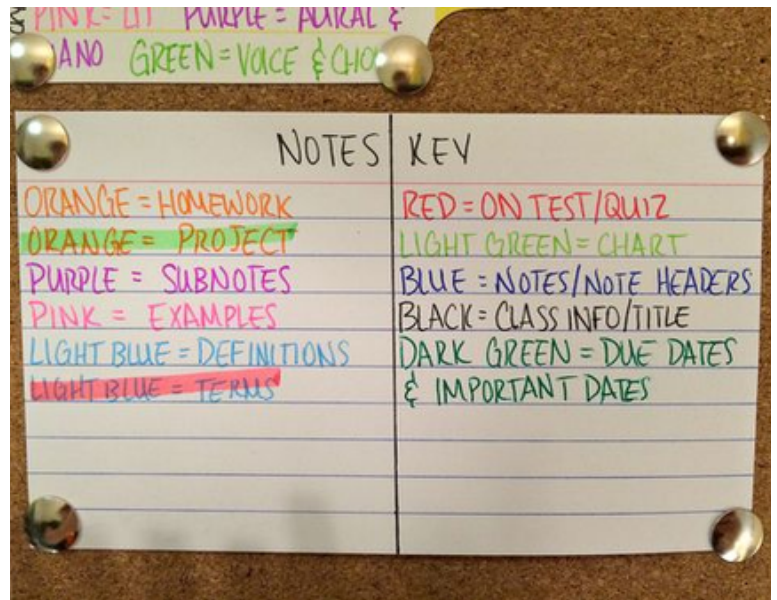 PINK = LIT PURPLE = AURAL &
GREEN = VOICE &
NOTES KEY
ORANGE = HOMEWORK
ORANGE = PROJECT
PURPLE = SUBNOTES
PINK = EXAMPLES
LIGHT BLUE = DEFINITIONS
LIGHT BLUE = TERMS
RED = ON TEST/QUIZ
LIGHT GREEN = CHART
BLUE = NOTES/NOTE HEADERS
BLACK = CLASS INFO/TITLE
DARK GREEN = DUE DATES
& IMPORTANT DATES